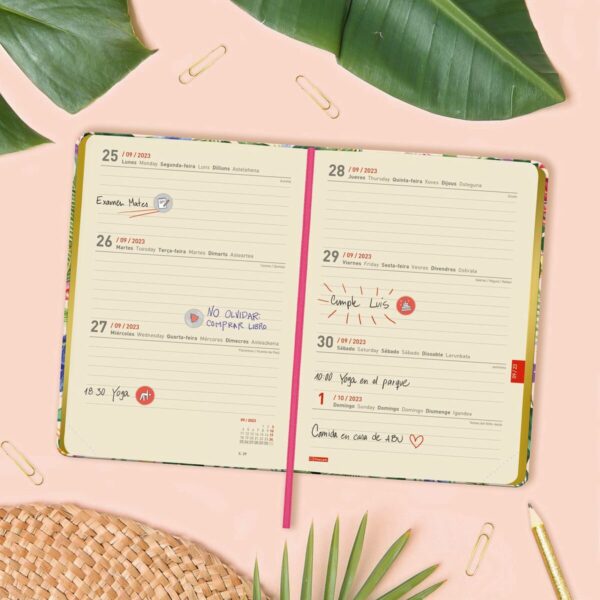 25 / 09 / 2023
Lunes Monday Segunda-feira Luns Dilluns Astelehena
Examen Mates
26 / 09 / 2023
Martes Tuesday Terça-feira Martes Dimarts Asteartea
NO OLVIDAR:
COMPRAR LIBRO.
27 / 09 / 2023
Miércoles Wednesday Quarta-feira Mércores Dimecres Asteazkena
18:30 Yoga
09 / 2023
28 / 09 / 2023
Jueves Thursday Quinta-feira Xoves Dijous Osteguna
29 / 09 / 2023
Viernes Friday Sexta-feira Venres Divendres Ostirala
Cumple Luis
30 / 09 / 2023
Sábado Saturday Sábado Sábado Dissabte Larunbata
09 / 23
10:00 Yoga en el parque
1 / 10 / 2023
Domingo Sunday Domingo Domingo Diumenge Igandea
Comida en casa de ABU